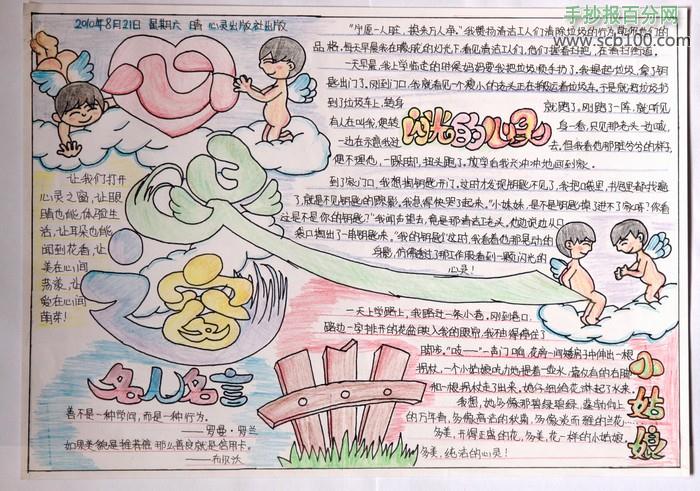 手抄报百分网
www.scb100.com
2010年8月21日 星期六 晴 心灵出版社出版
心灵之窗
让我们打开
心灵之窗，让眼
睛也能，体验生
活，让耳朵也能，
闻到花香，让
美在心间
荡漾，让
爱在心间
萌芽！
名人名言
善不是一种学问，而是一种行为。
——罗曼·罗兰
如果美貌是推荐信，那么善良就是信用卡。
——布尔沃
闪光的心灵
"宁愿一人脏，换来万人净。"我赞扬清洁工人们清除垃圾的行为
品格，每天早晨在朦胧的灯光下看见清洁工人们，他们握着扫把，在清扫街道。
一天早晨，我上学临走的时候妈妈要我把垃圾顺手扔了，我提起垃圾，拿了钥
匙出门了，刚到门口，我就看见一个瘦小的老头正在搬运着垃圾车，于是就把垃圾扔
到了垃圾车上，转身
就跑了，刚跑了一阵，就听见
有人在叫我，便转
身一看，只见那老头一边喊，
一边在示意我过
去，但我看他那脏兮兮的样子，
便不理他，一跺脚，扭头跑了。放学后我兴冲冲地回到家。
到了家门口，我想掏钥匙开门，这时才发现钥匙不见了，我把嘴里，书包里都找遍
了，就是不见钥匙的踪影，我急得快哭了起来。"小妹妹，是不是钥匙丢了进不了家呀？你看
这是不是你的钥匙？"我闻声望去，竟是那清洁工老头，他边说边从口
袋口掏出了一串钥匙来。"我的钥匙！"这时，我看着他那晃动的
身影，仿佛透过那工作服看到一颗闪光的
心灵！
小姑娘
一天上学路上，我路过一条小巷，刚到巷口，
路边一字排开的花盆映入我的眼帘，我不由得停住了
脚步。"吱——"一声门响，花旁一间矮房子中伸出一根
拐杖，一个小姑娘吃力地提着一壶水，靠仅有的右脚
和一根拐杖走出来，她仔细地给花浇起了水来。
我想，她多像那碧绿碧绿，蓬勃向上
的万年青，多像高洁的秋菊，多像淡而雅的兰花……
多美，开得正盛的花，多美，花一样的小姑娘，
多美，纯洁的心灵！